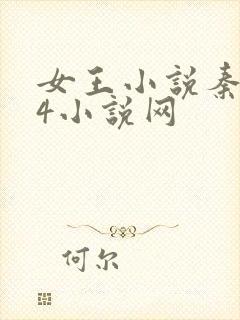 女王小説秦
4小説网
何尔